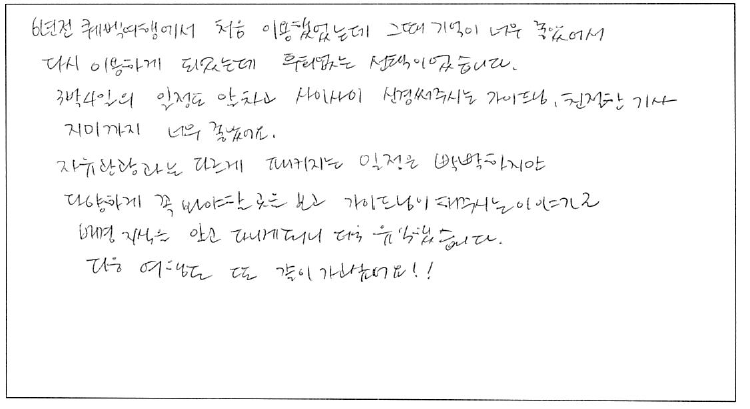 6년전 퀘벡여행에서 처음 이용했었는데 그때 기억이 너무 좋았어서
다시 이용하게 되었는데 후회없는 선택이었습니다.
3박4일의 일정도 알차고 사이사이 신경써주시는 가이드님, 친절한 기사
지미까지 너무 좋았어요.
자유관광과는 다르게 패키지는 일정은 빡빡하지만
다양하게 꼭 봐야할 곳은 보고 가이드님이 해주시는 이야기로
배경 지식을 알고 다니게되니 더욱 유익했습니다.
다음 여행도 또 같이 가려해요!!